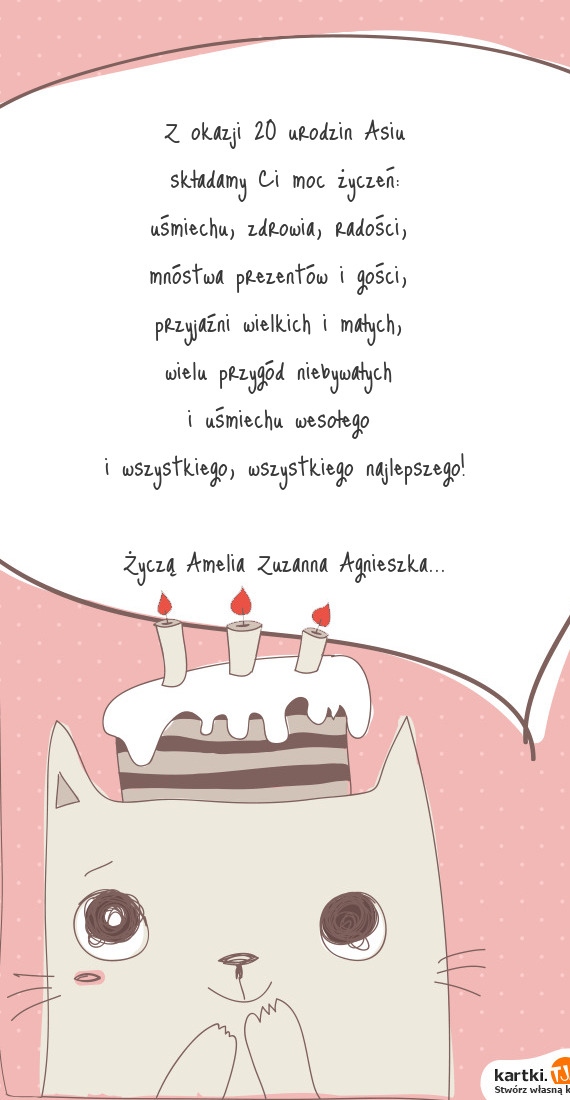 Z okazji 20 urodzin Asiu
składamy Ci moc życzeń:
uśmiechu, zdrowia, radości,
mnóstwa prezentów i gości,
przyjaźni wielkich i małych,
wielu przygód niebywałych
i uśmiechu wesołego
i wszystkiego, wszystkiego najlepszego!
Życzą Amelia Zuzanna Agnieszka...
kartki.TJ
Stwórz własną k